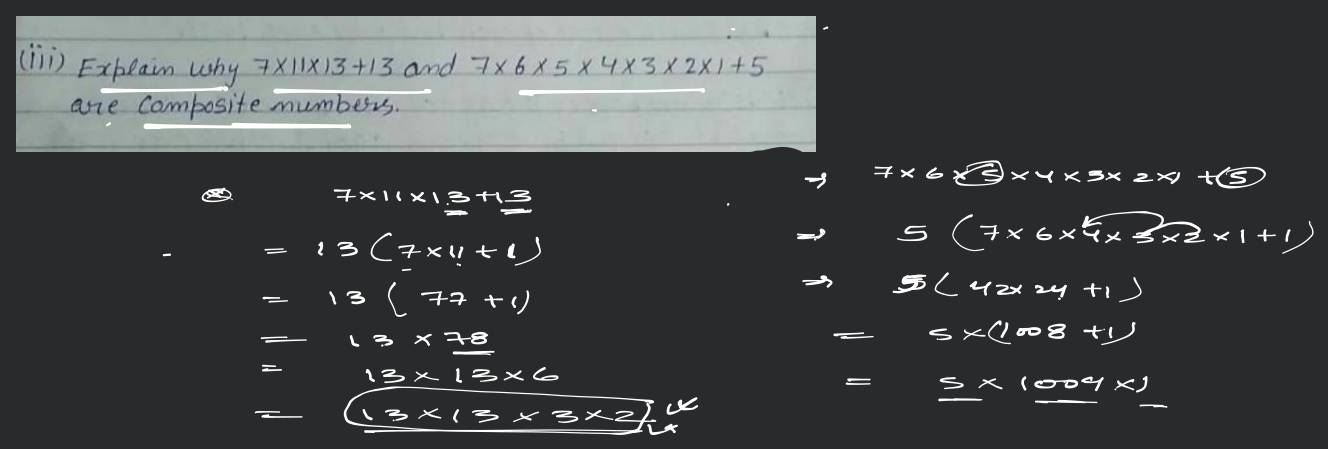 (iii) Explain why 7×11×13+13 and 7×6×5×4×3×2×1+5
are Composite numbers.
7×11×13+13
= 13(7×11+1)
= 13(77+1)
= 13×78
= 13×13×6
= 13×13×3×2
→ 7×6×5×4×3×2×1+5
⇒ 5(7×6×4×3×2×1+1)
⇒ 5(42×24+1)
= 5×(1008+1)
= 5×1009×1